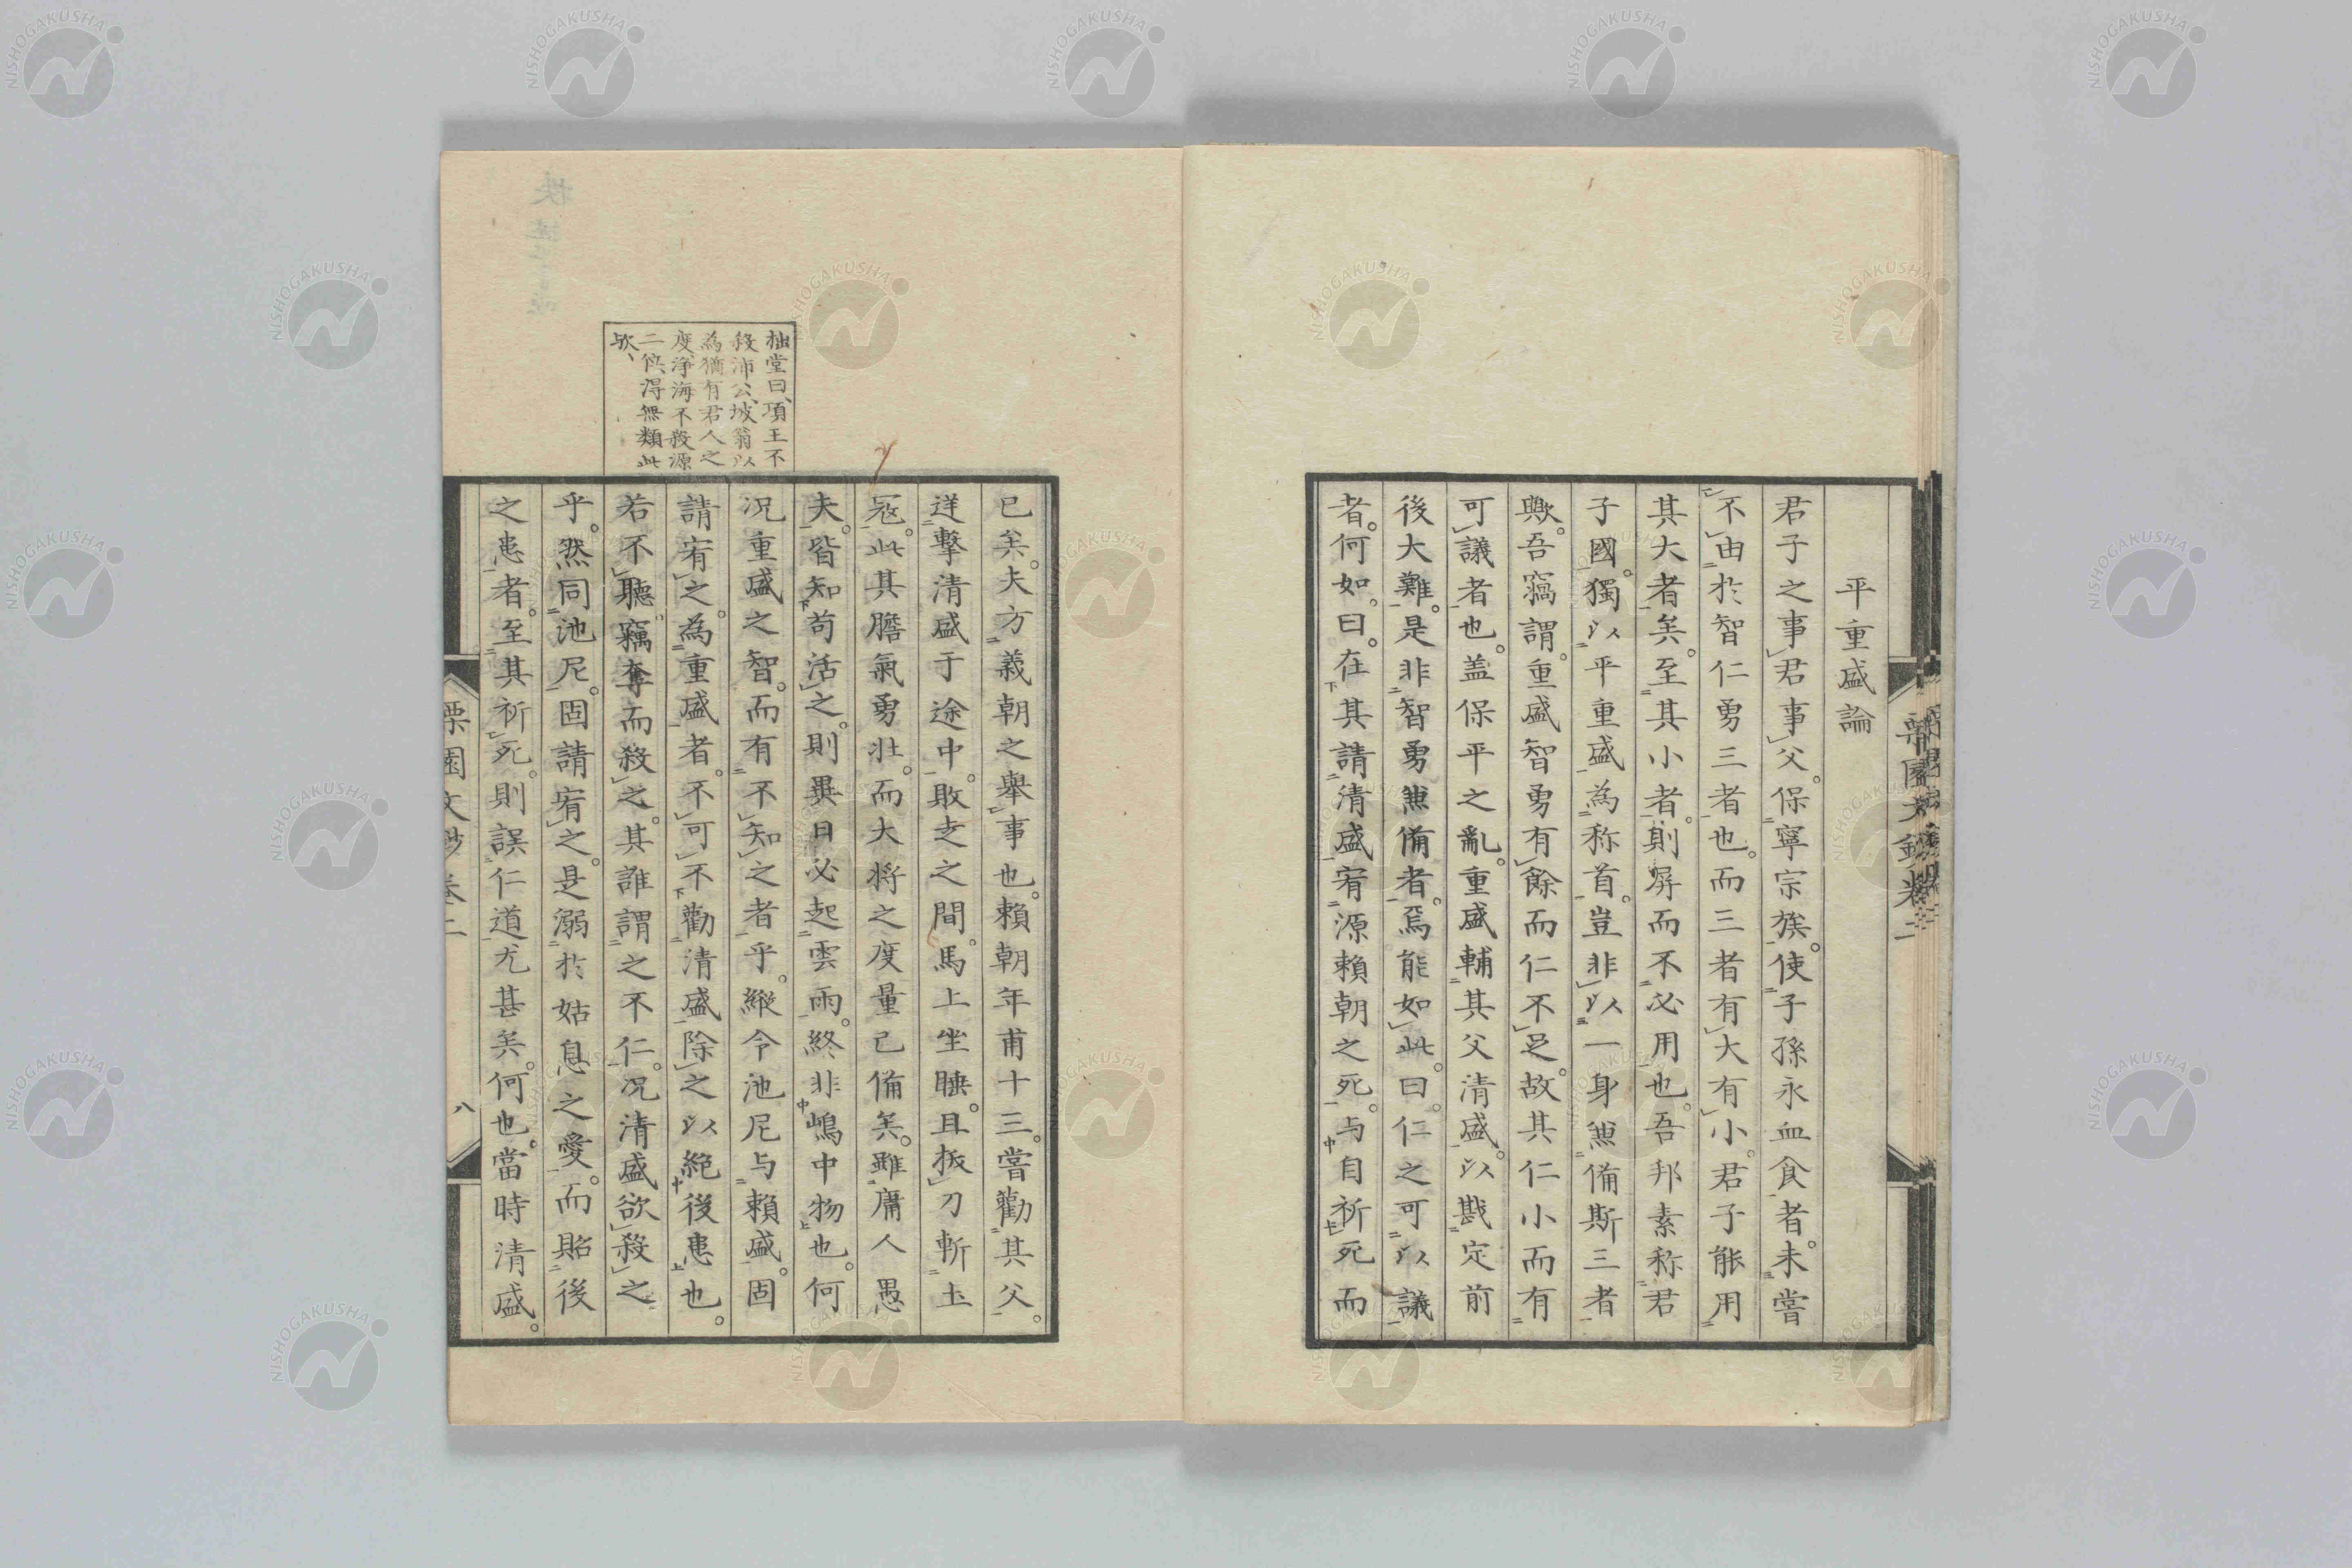 平重盛論
君子之事君事父。保寧宗族。使子孫永血食者。未嘗
不由於智仁勇三者也。而三者有大有小。君子能用
其大者矣。至其小者。則屏而不必用也。吾邦素称君
子國。獨以平重盛為称首。豈非以一身𠔥備斯三者
歟。吾竊謂。重盛智勇有餘而仁不足。故其仁小而有
可議者也。盖保平之亂。重盛輔其父清盛。以戡定前
後大難。是非智勇𠔥備者。焉能如此。曰。仁之可以議
者。何如。曰。在其請清盛宥源賴朝之死。与自祈死而
已矣。夫方義朝之舉事也。賴朝年甫十三。嘗勸其父。
逆擊清盛于途中。敗走之間。馬上坐睡。且拔刀斬土
冦。此其膽氣勇壮。而大将之度量已備矣。雖庸人愚
夫。皆知苟活之。則異日必起雲雨。終非嶋中物也。何
况重盛之智。而有不知之者乎。縱令池尼与賴盛。固
請宥之。為重盛者。不可不勸清盛除之以絶後患也。
若不聽竊奪而殺之。其誰謂之不仁。况清盛欲殺之
乎。然同池尼。固請宥之。是溺於姑息之愛。而貽後
之患者。至其祈死。則誤仁道尤甚矣。何也。當時清盛。
拙堂曰、項王不
殺沛公、坡翁以
為猶有君人之
度、淨海不殺源
二位、得無類此
欤、
栗園文鈔卷二
八
NISHOGAKUSHA